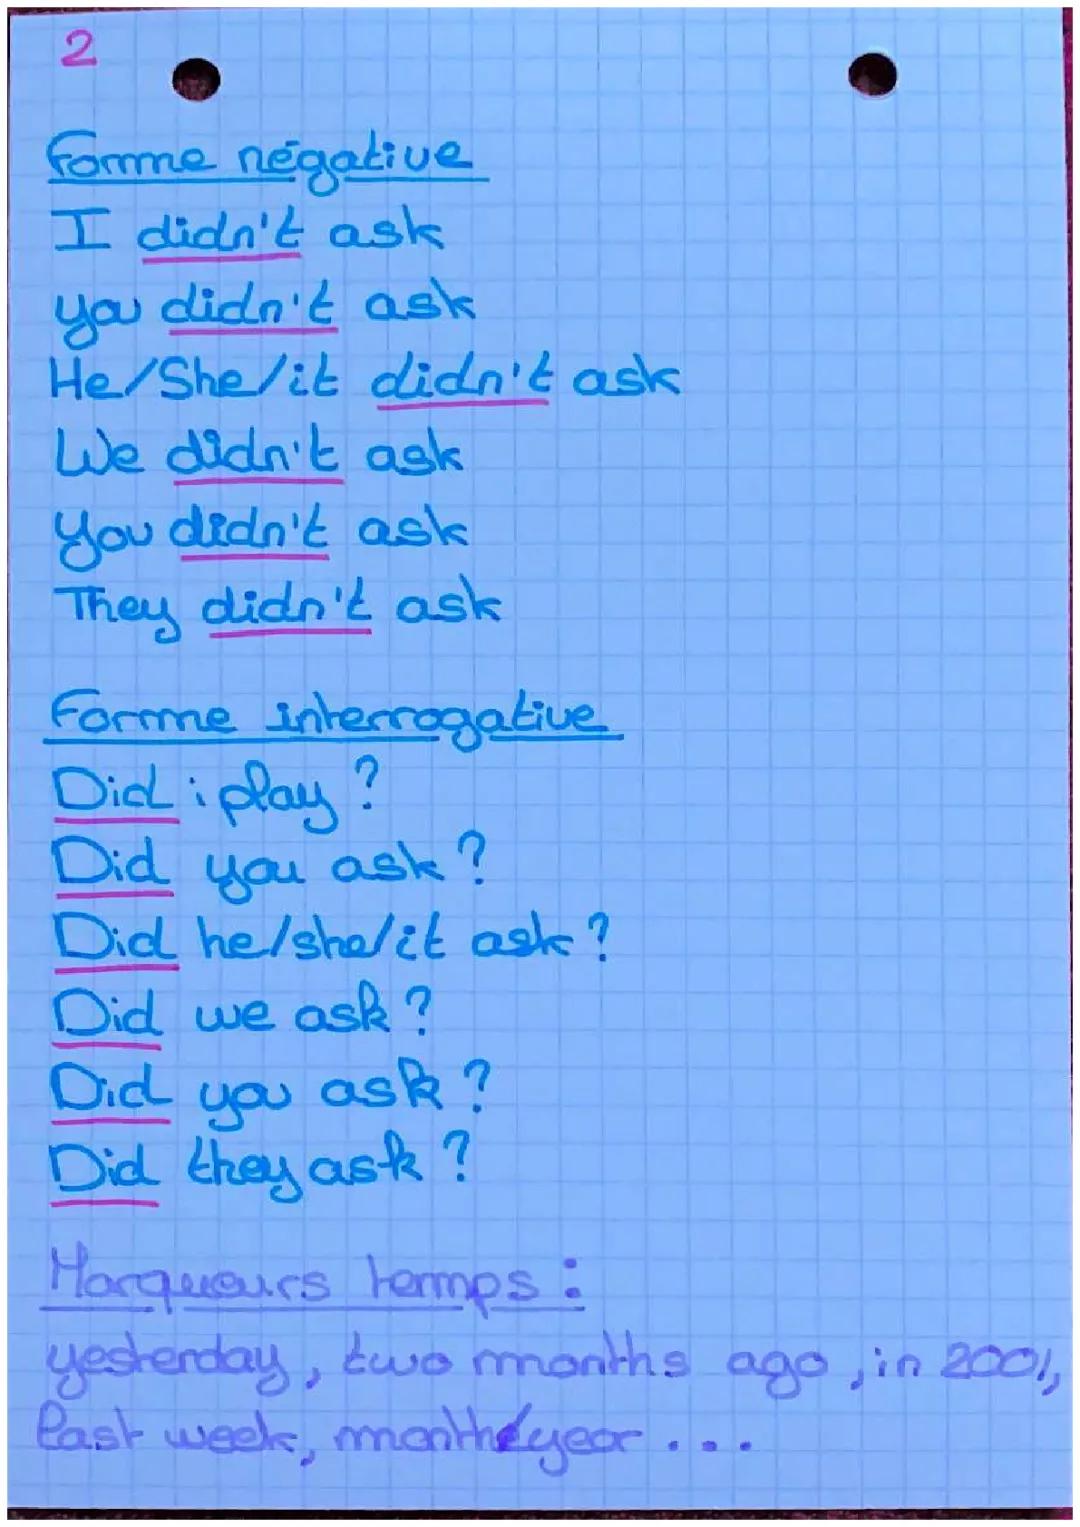 2
Forme négative
I didn't ask
you didn't ask
He/She/it didn't ask
We didn't ask
you didn't ask
They didn't ask
Forme interrogative
Did i play ?
Did you ask ?
Did he/she/it ask ?
Did we ask ?
Did you ask ?
Did they ask ?
Marqueurs temps :
yesterday, two months ago, in 2001,
last week, month/year ...